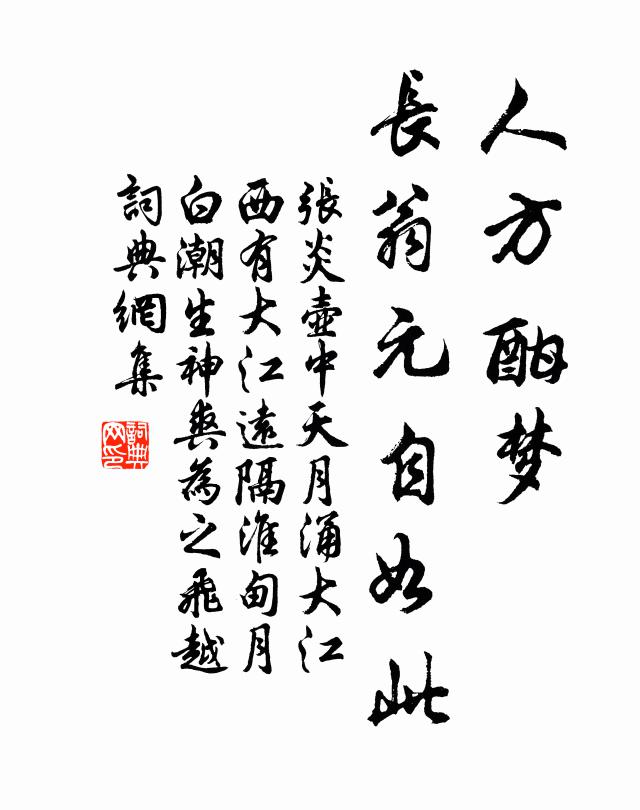 人方酣梦
長翁元自如此
張炎壺中天月涌大江
西有大江遠隔淮甸月
白潮生神爽為之飛越
詞典網集
詞典
网印